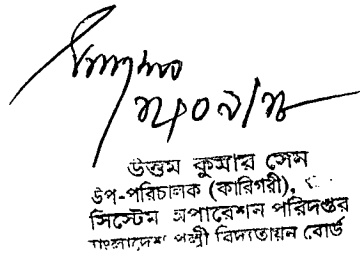 উত্তম কুমার সেন
উপ-পরিচালক (কারিগরী),
সিস্টেম অপারেশন পরিদপ্তর
বাংলাদেশ পল্লী বিদ্যুতায়ন বোর্ড